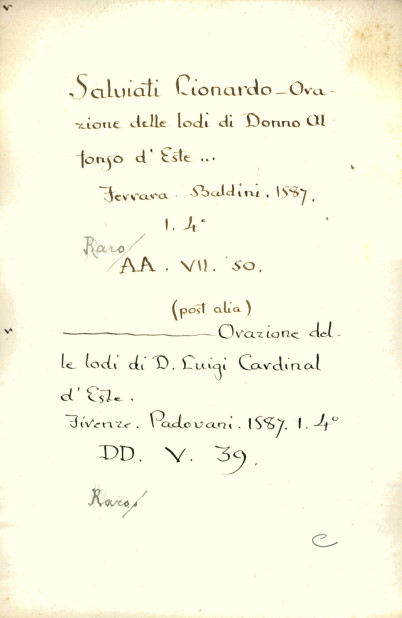 Salviati Lionardo - Ora-
zione delle lodi di Donno Al
fonso d'Este ...
Ferrara. Baldini. 1587.
1. 4°
Raro
AA. VII. 50.
(post alia)
Orazione del-
le lodi di D. Luigi Cardinal
d'Este.
Firenze. Padovani. 1587. 1. 4°
DD. V. 39.
Raro
C